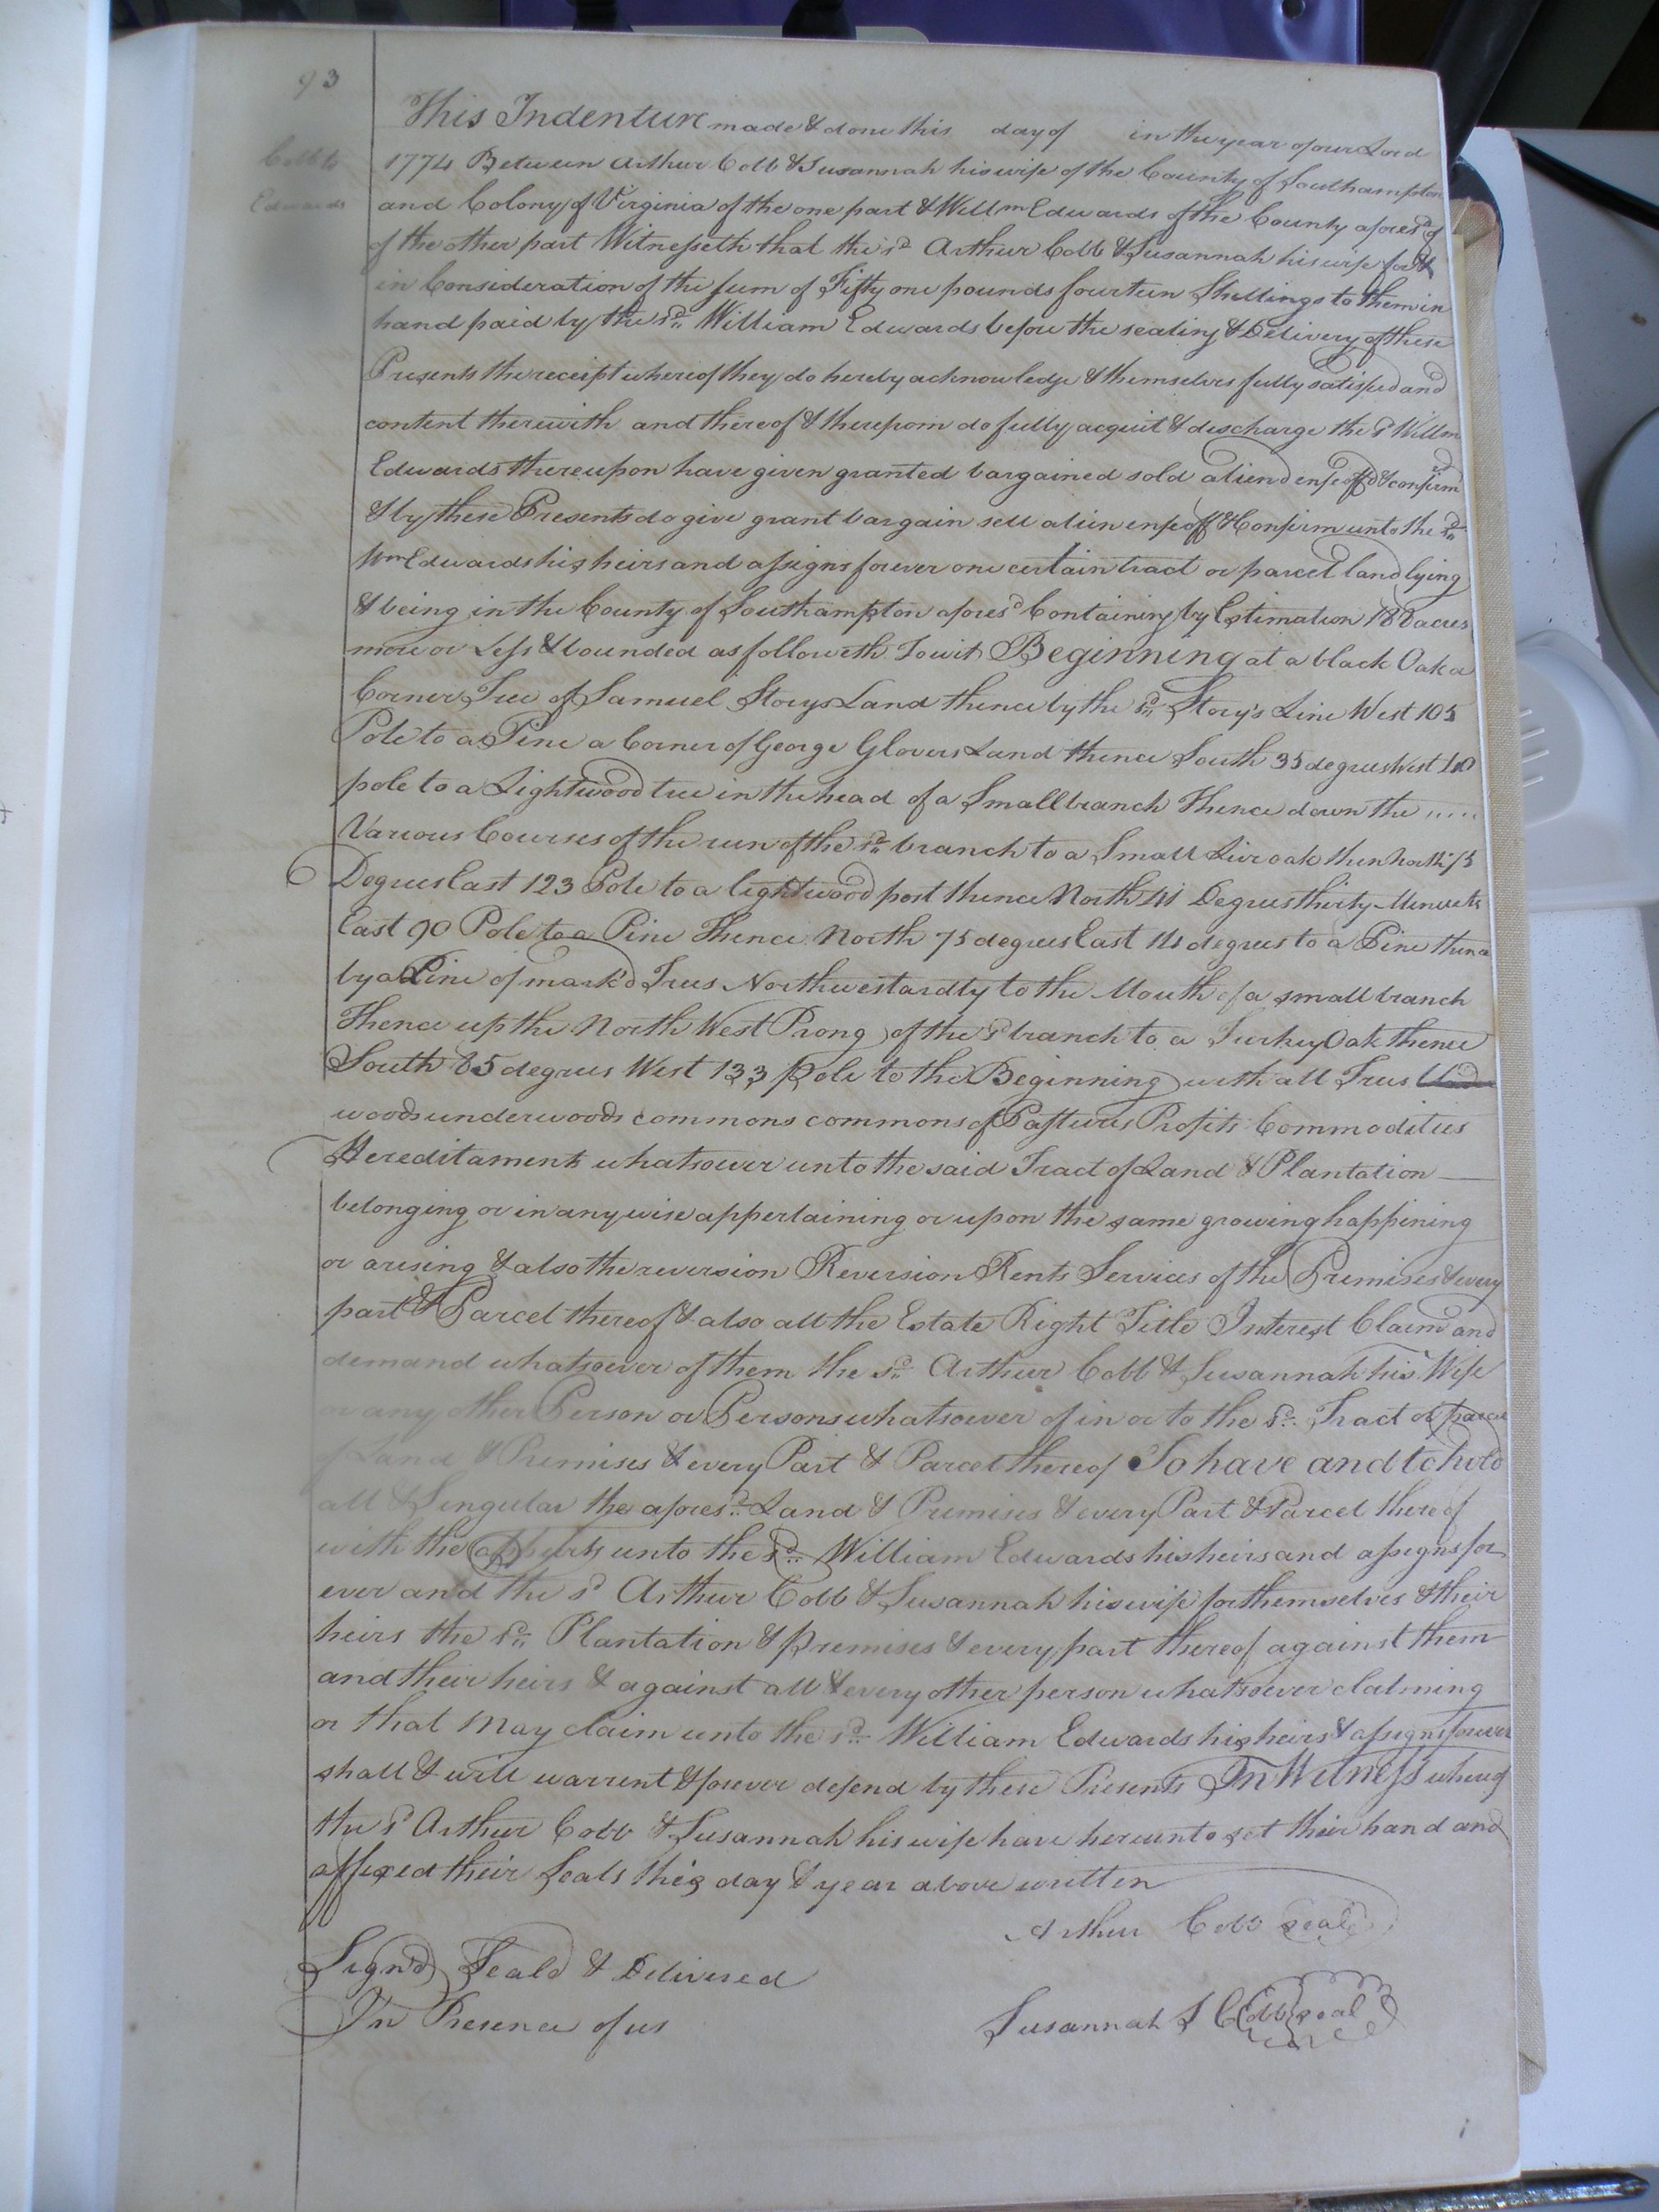 93
Cobb to
Edwards
This Indenture made & done this day of in the year of our Lord
1774 Between Arthur Cobb & Susannah his wife of the County of Southampton
and Colony of Virginia of the one part & Willm Edwards of the County afores'd of
of the other part Witnesseth that the sd Arthur Cobb & Susannah his wife for &
in Consideration of the sum of Fifty one pounds fourteen Shillings to them in
hand paid by the sd William Edwards before the sealing & Delivery of these
Presents the receipt whereof they do hereby acknowledge & themselves fully satisfied and
content therewith and thereof & therefrom do fully acquit & discharge the sd Willm
Edwards thereupon have given granted bargained sold aliend enfeoffd & confirmd
& by these Presents do give grant bargain sell alien enfeoff & Confirm unto the sd
Wm Edwards his heirs and assigns forever one certain tract or parcel land lying
& being in the County of Southampton aforesd Containing by Estimation acres
more or Less & bounded as followeth Towit Beginning at a black Oak a
Corner Tree of Samuel Storys Land thence by the sd Story's Line West 105
Pole to a Pine a Corner of George Glovers Land thence South 35 degrees West
pole to a Lightwood tree in the head of a Small branch Thence down the .....
Various Courses of the run of the sd branch to a Small Live oak then North 75
Degrees East 123 Pole to a lightwood post thence North 41 Degrees thirty Minuets
East 90 Pole to a Pine Thence North 75 degrees East degrees to a Pine thence
by a Line of mark'd Trees Northwestardly to the Mouth of a small branch
Thence up the North West Prong of the sd branch to a Turkey Oak thence
South 85 degrees West 133 Pole to the Beginning with all Trees
woods underwoods commons commons of Pastures Profits Commodities
Hereditaments whatsoever unto the said Tract of Land & Plantation
belonging or in any wise appertaining or upon the same growing happining
or arising & also the reversion Reversion Rents Services of the Premises & every
part & Parcel thereof & also all the Estate Right Title Interest Claim and
demand whatsoever of them the sd Arthur Cobb & Susannah his Wife
or any other Person or Persons whatsoever of in or to the sd Tract or parcel
of Land & Premises & every Part & Parcel thereof To have and to hold
all & Singular the aforesd Land & Premises & every Part & Parcel thereof
with the appurts unto the sd William Edwards his heirs and assigns for
ever and the sd Arthur Cobb & Susannah his wife for themselves & their
heirs the sd Plantation & premises & every part thereof against them
and their heirs & against all & every other person whatsoever claiming
or that May claim unto the sd William Edwards his heirs & assigns forever
shall & will warrent & forever defend by these Presents In Witness whereof
the sd Arthur Cobb & Susannah his wife have hereunto set their hand and
affixed their Seals this day & year above written
Arthur Cobb seal
Sign'd Seald & Delivered
In Presence of us
Susannah S Cobb seal